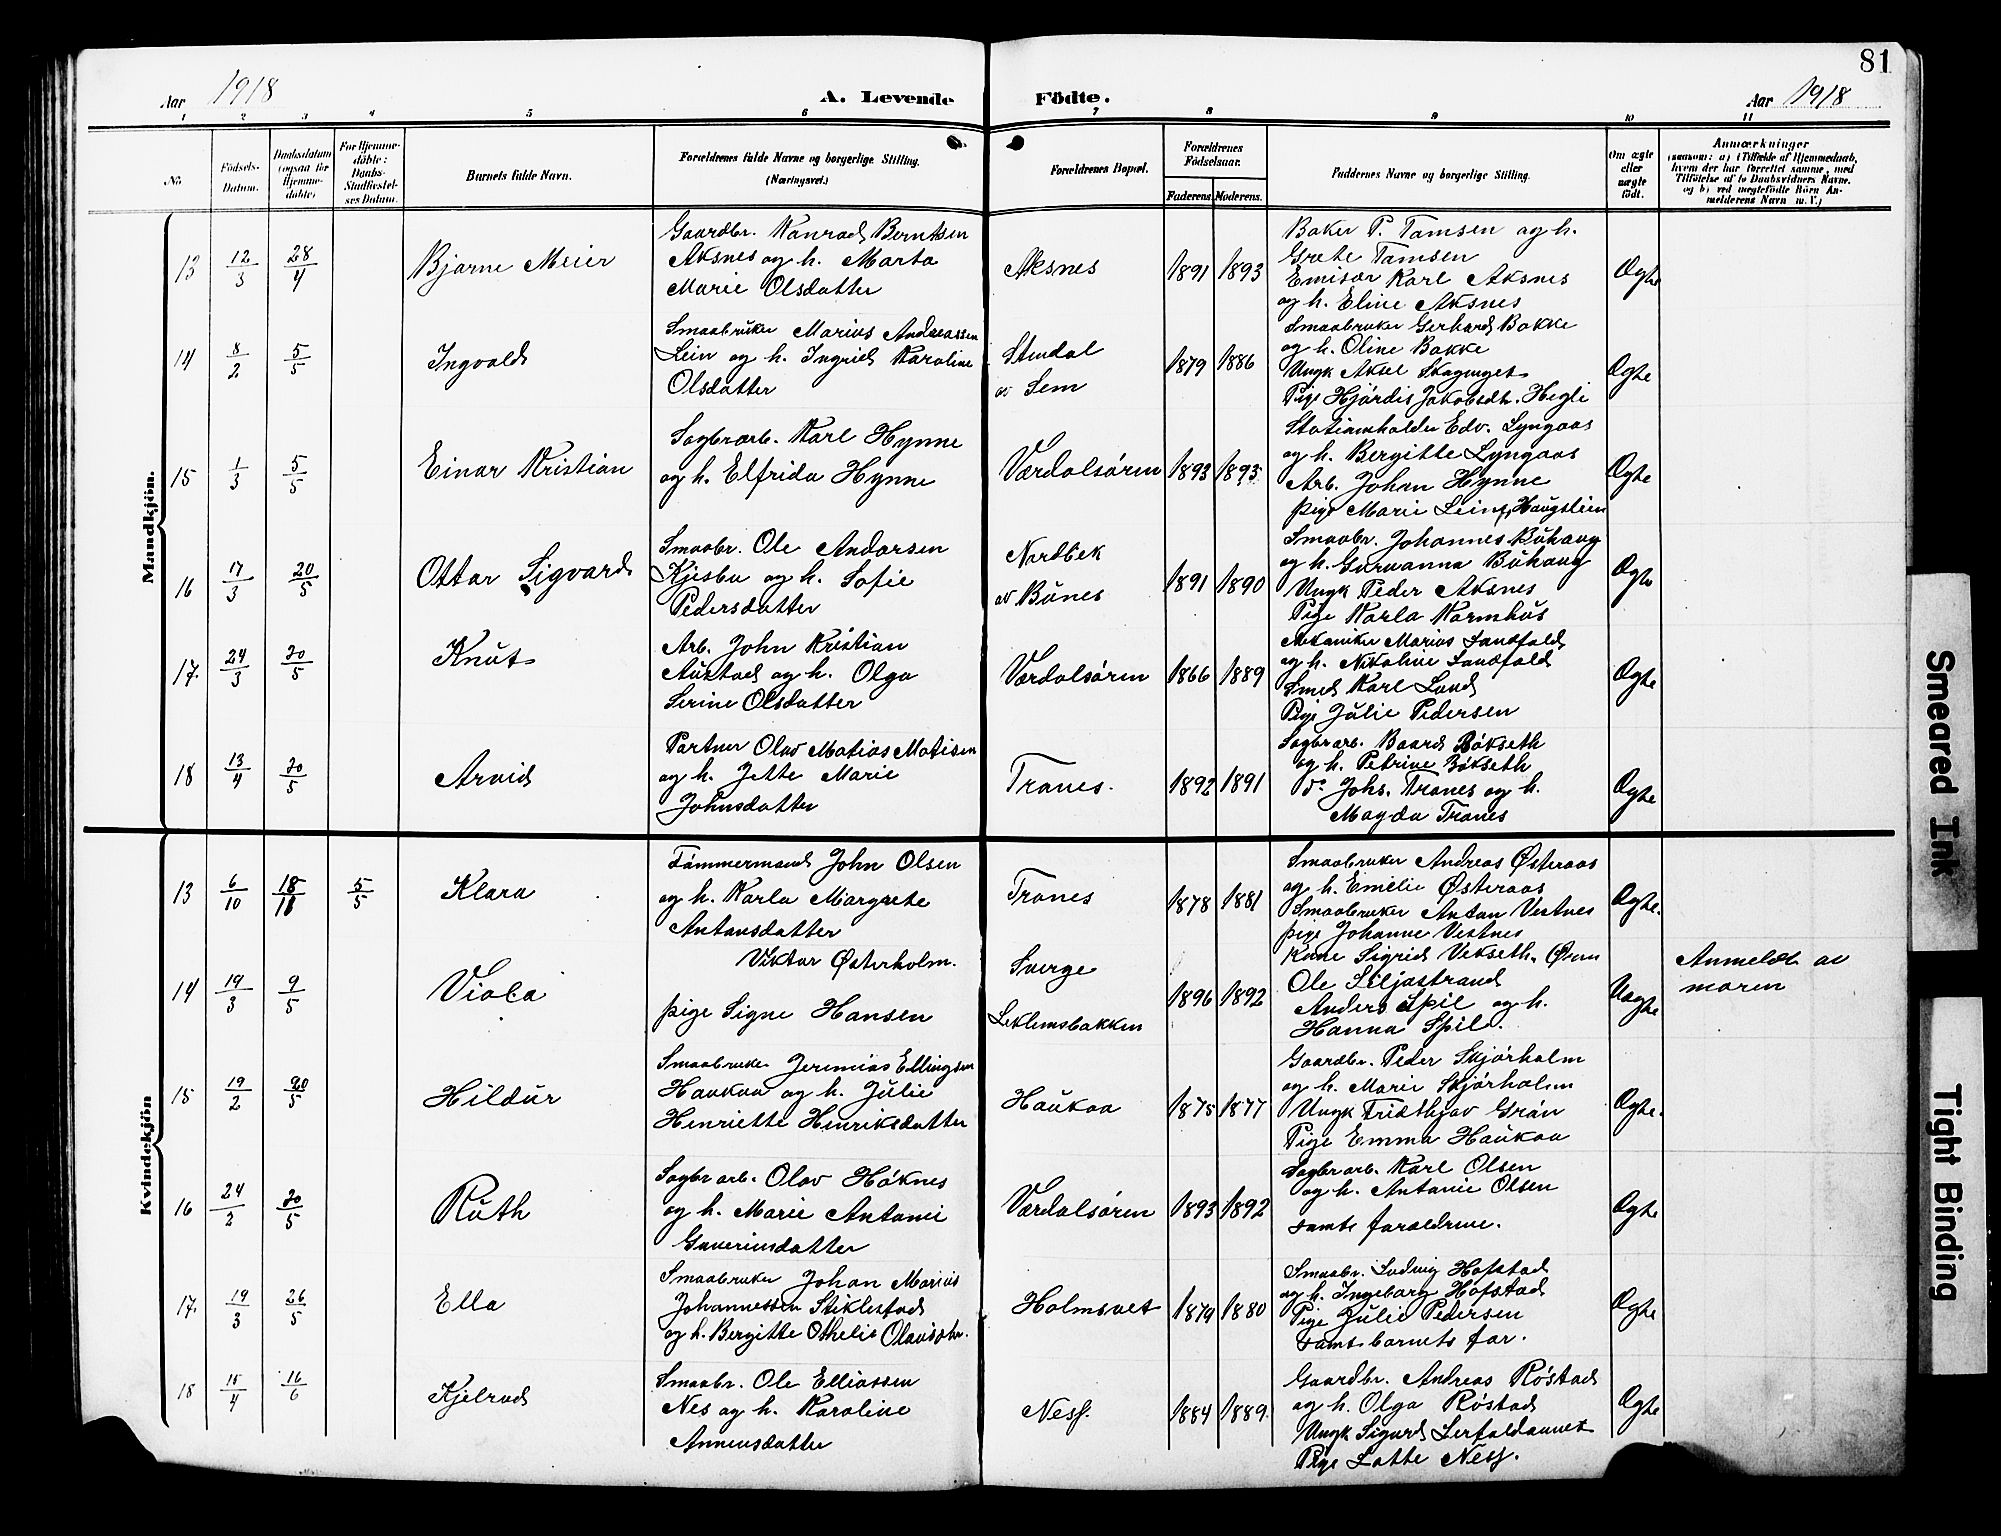 81
Aar 1918
A. Levende Födte.
Aar 1918
1 2 3 4 5 6 7 8 9 10 11
No
Födsels-Datum.
Daabsdatum (ogsaa for Hjemme-döbte).
For Hjemme-döbte: Daabs-Stadfæstel-ses Datum.
Barnets fulde Navn.
Forældrenes fulde Navne og borgerlige Stilling.
(Næringsvei.)
Forældrenes Bopæl.
Forældrenes Födselsaar.
Faderens. Moderens.
Faddernes Navne og borgerlige Stilling.
Om ægte eller uægte födt.
Anmærkninger
(saasom: a) i Tilfælde af Hjemmedaab,
hvem der har forrettet samme, med
Tilföielse af to Daabsvidners Navne,
og b) ved uægtefödte Börn An-
melderens Navn m. V.)
Mandkjön.
13 12/3 28/4 Bjarne Meier
Gaardbr. Konrad Berntsen
Aksnes og h. Marta
Marie Olsdatter
Aksnes 1891 1893
Baker P. Tamsen og h.
Grete Tamsen
Emisær Karl Aksnes
og h. Eline Aksnes
Ægte
14 8/2 5/5 Ingvald
Smaabruker Marius Andreassen
Lein og h. Ingrid Karoline
Olsdatter
Stendal
av Sem
1879 1886
Smaabruker Gerhard Bakke
og h. Oline Bakke
Ungk Aksel
Pige Hjördis Jakobsdtr. Hegli
Ægte
15 1/3 5/5 Einar Kristian
Sagbrarb. Karl Hynne
og h. Elfrida Hynne
Værdalsören 1893 1895
Stationsholder Edv. Lyngaas
og h. Bergitte Lyngaas
Arb. Johan Hynne
pige Marie Lein, Haugslien
Ægte
16 17/3 20/5 Ottar Sigvard
Smaabr. Ole Andorsen
Kjesbu og h. Sofie
Pedersdatter
Nordbek
av Bunes
1891 1890
Smaabr. Johannes Buhaug
og h. Guruanna Buhaug
Ungk Peder Aksnes
Pige Karla Kormhus
Ægte
17. 24/3 20/5 Knut
Arb. John Kristian
Austad og h. Olga
Serine Olsdatter
Værdalsören 1866 1889
Mekaniker Marius Landfald
og h. Nikoline Landfald
Smed Karl Lund
Pige Julie Pedersen
Ægte
18 13/4 20/5 Arvid
Partner Olav Matias Matisen
og h. Jette Marie
Johnsdatter
Tranes. 1892 1891
Sagbrarb. Baard Bökseth
og h. Petrine Bökseth
do Johs. Tranes og h.
Magda Tranes
Ægte
Kvindekjön
13 6/10 18/11 5/5 Klara
Tömmermand John Olsen
og h. Karla Margrete
Antonsdatter
Tranes 1878 1881
Smaabruker Andreas Østeraas
og h. Emelie Østeraas
Smaabruker Anton Vestnes
pige Johanne Vestnes
Ægte.
14 19/3 9/5 Viola
Viktor Österholm.
pige Signe Hansen
Sverge
Leklemsbakken
1896 1892
Kone Sigrid Vekseth, Øren
Ole Liljastrand
Anders Spil og h.
Hanna Spil.
Uægte
Anmeldt av
moren
15 19/2 20/5 Hildur
Smaabruker Jeremias Ellingsen
Haukaa og h. Julie
Henriette Henriksdatter
Haukaa 1875 1877
Gaardbr. Peder Skjörholm
og h. Marie Skjörholm
Ungk Fridthjov Grön
Pige Emma Haukaa
Ægte.
16 24/2 20/5 Ruth
Sagbrarb. Olav Höknes
og h. Marie Antonie
Guneriusdatter
Værdalsören 1893 1892
Sagbrarb. Karl Olsen
og h. Antonie Olsen
samt foraldrene.
Ægte
17. 19/3 26/5 Ella
Smaabruker Johan Marius
Johannessen Stiklestad
og h. Bergitte Othelie Olausdtr.
Holmsvet 1879 1880
Smaabr. Ludvig Hofstad
og h. Ingeborg Hofstad
Pige Julie Pedersen
samt barnets far.
Ægte
18 15/4 16/6 Kjelrud
Smaabr. Ole Elliassen
Nes og h. Karoline
Annensdatter
Ness. 1884 1889.
Gaardbr. Andreas Röstad
og h. Olga Röstad
Ungk Sigurd Lerfaldaunet
Pige Lotte Ness.
Ægte
Smeared Ink
Tight Binding